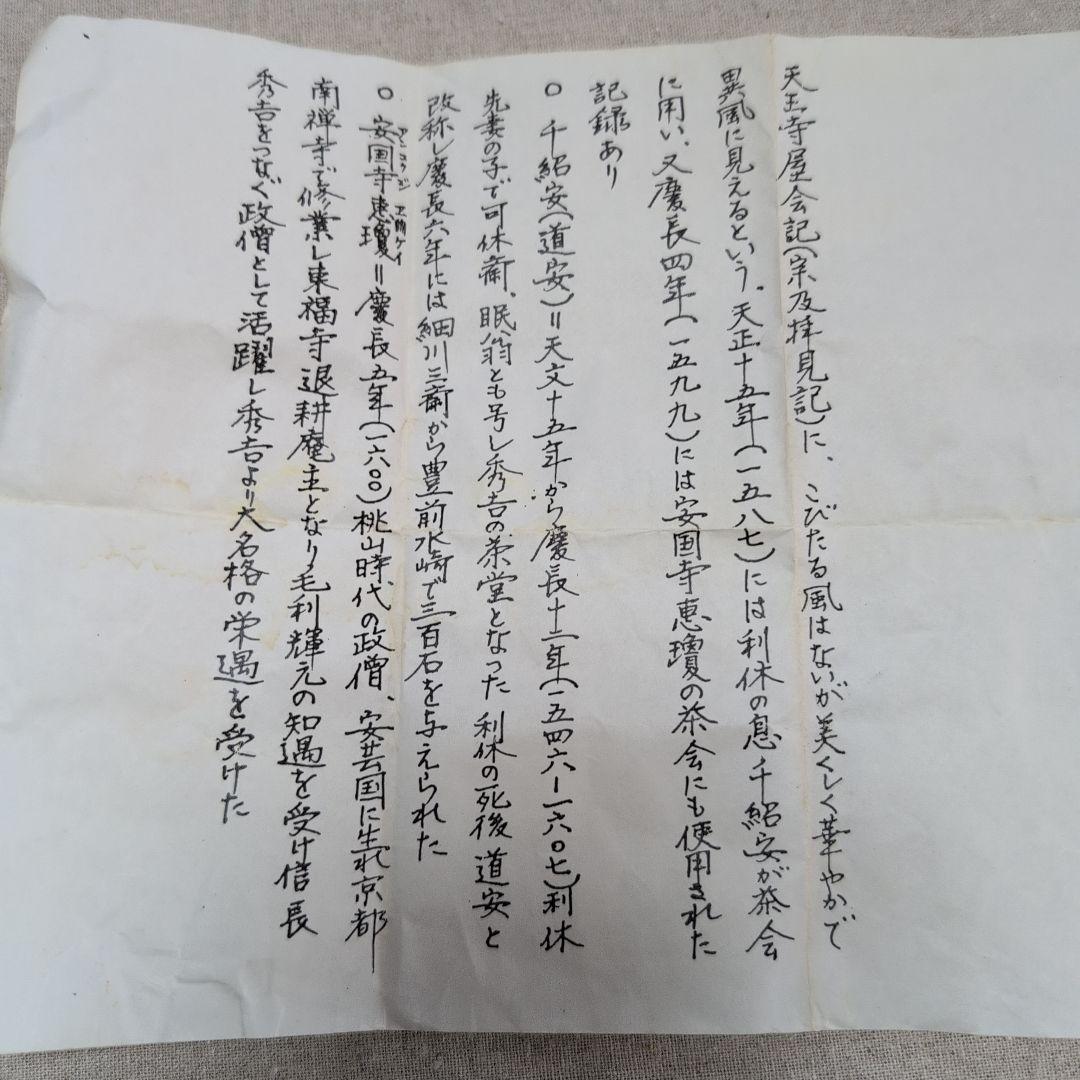 天王寺屋会記(宗及拝見記)に、こびたる風はないが美くしく華やかで
異風に見えるという。天正十五年(一五八七)には利休の息千紹安が茶会
に用い、又慶長四年(一五九九)には安国寺恵瓊の茶会にも使用された
記録あり
○ 千紹安(道安)=天文十五年から慶長十二年(一五四六ー一六〇七)利休
先妻の子で可休斎、眠翁とも号し秀吉の茶堂となった利休の死後道安と
改称し慶長六年には細川三斎から豊前水崎で三百石を与えられた
○ 安国寺恵瓊=慶長五年(一六〇〇)桃山時代の政僧、安芸国に生れ京都
アンコクジ
南禅寺で修業し東福寺退耕庵主となり毛利輝元の知遇を受け信長
秀吉をつなぐ政僧として活躍し秀吉より大名格の栄遇を受けた